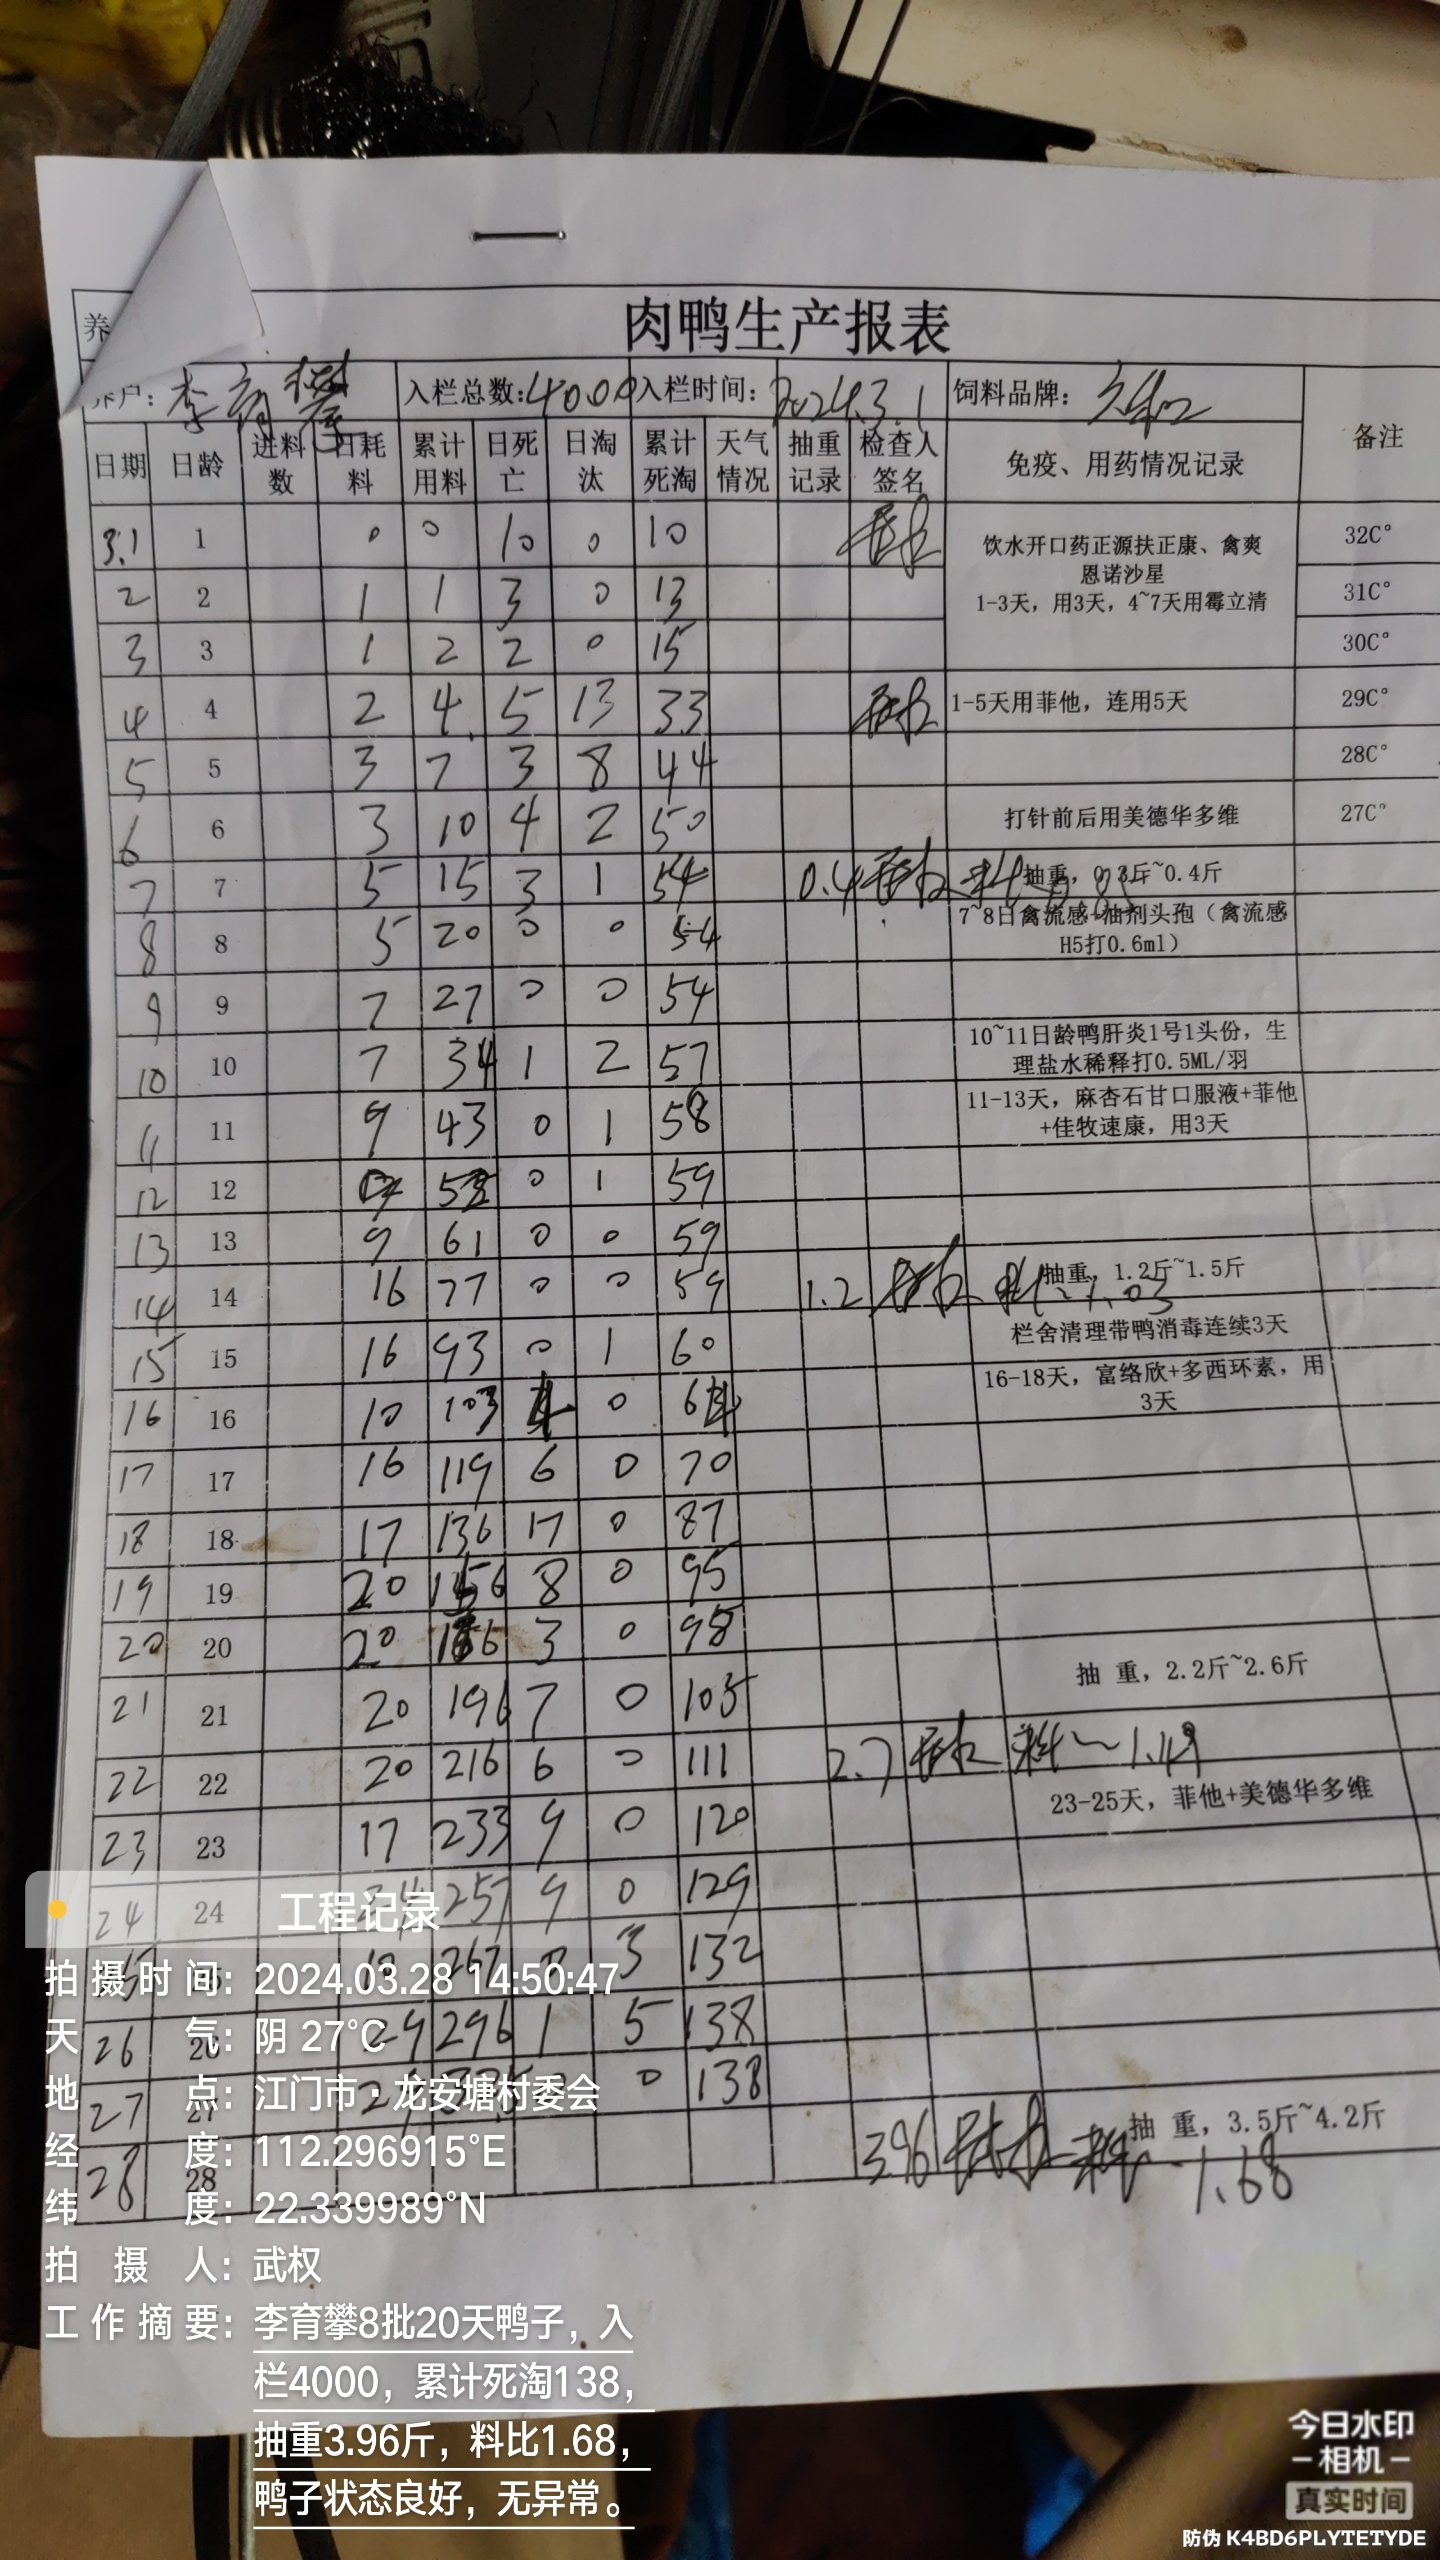 肉鸭生产报表
养
户: 李育攀 入栏总数:4000 入栏时间: 2024.3.1 饲料品牌:
日期 日龄 进料数 日耗料 累计用料 日死亡 日淘汰 累计死淘 天气情况 抽重记录 检查人签名 免疫、用药情况记录 备注
3.1 1 0 0 10 0 10 32C°
饮水开口药正源扶正康、禽爽
恩诺沙星
1-3天，用3天，4~7天用霉立清
2 2 1 1 3 0 13 31C°
3 3 1 2 2 0 15 30C°
4 4 2 4 5 13 33 1-5天用菲他，连用5天 29C°
5 5 3 7 3 8 44 28C°
6 6 3 10 4 2 50 打针前后用美德华多维 27C°
7 7 5 15 3 1 54 0.4 抽重，0.3斤~0.4斤
8 8 5 20 0 0 54 7~8日禽流感+油剂头孢（禽流感
H5打0.6ml）
9 9 7 27 0 0 54
10 10 7 34 1 2 57 10~11日龄鸭肝炎1号1头份，生
理盐水稀释打0.5ML/羽
11 11 9 43 0 1 58 11-13天，麻杏石甘口服液+菲他
+佳牧速康，用3天
12 12 0 1 59
13 13 9 61 0 0 59
14 14 16 77 0 0 59 1.2 抽重，1.2斤~1.5斤
15 15 16 93 0 1 60 栏舍清理带鸭消毒连续3天
16 16 10 103 0 16-18天，富络欣+多西环素，用
3天
17 17 16 119 6 0 70
18 18 17 136 17 0 87
19 19 20 156 8 0 95
20 20 20 3 0 98
21 21 20 196 7 0 105 抽 重，2.2斤~2.6斤
22 22 20 216 6 0 111 2.7 料~1.49
23 23 17 233 9 0 120 23-25天，菲他+美德华多维
24 24 257 9 0 129
3 132
26 26 29 296 1 5 138
27 27 0 138
28 28 3.96 抽 重，3.5斤~4.2斤
1.68
工程记录
拍摄时间: 2024.03.28 14:50:47
天气: 阴 27°C
地点: 江门市·龙安塘村委会
经度: 112.296915°E
纬度: 22.339989°N
拍摄人: 武权
工作摘要: 李育攀8批20天鸭子，入
栏4000，累计死淘138，
抽重3.96斤，料比1.68，
鸭子状态良好，无异常。
今日水印
相机
真实时间
防伪 K4BD6PLYTETYDE